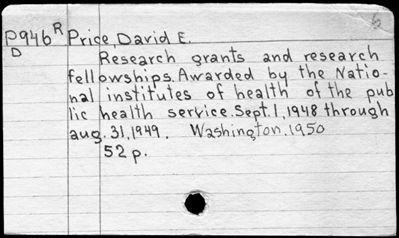 6
P946R Price, David E.
D
Research grants and research
fellowships. Awarded by the Natio-
nal institutes of health of the pub
lic health service. Sept. 1, 1948 through
aug. 31, 1949. Washington. 1950
52 p.